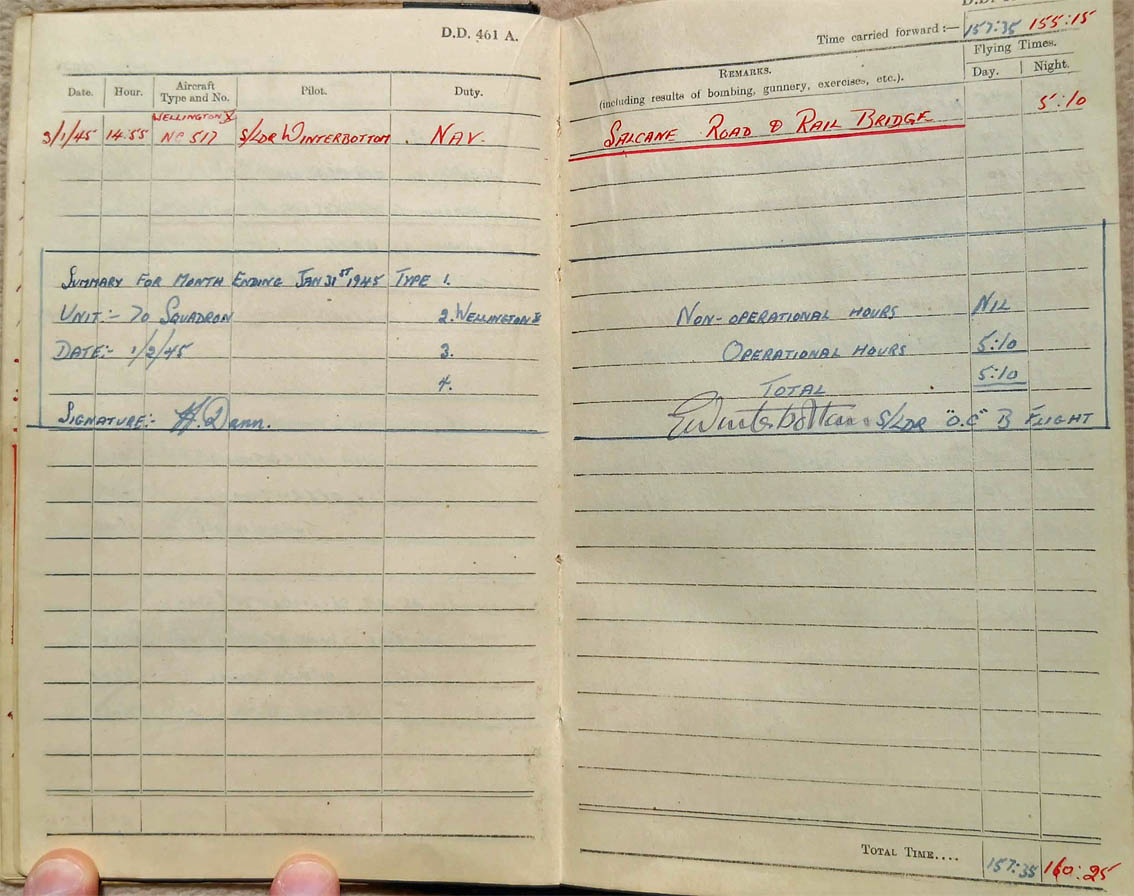 D.D. 461 A.
Date. Hour. Aircraft Type and No. Pilot. Duty.
WELLINGTON X
3/1/45 14.55 NC 517 S/LDR WINTERBOTTOM . NAV.
SUMMARY FOR MONTH ENDING JAN 31ST 1945 TYPE 1.
UNIT:- 70 SQUADRON 2. WELLINGTON X
DATE:- 1/2/45 3.
4.
SIGNATURE:- H. Dann.
Time carried forward :— 157:35 155:15
REMARKS. Flying Times.
(including results of bombing, gunnery, exercises, etc.). Day. Night.
SALCANE ROAD & RAIL BRIDGE 5:10
NON-OPERATIONAL HOURS NIL
OPERATIONAL HOURS 5:10
TOTAL 5:10
EWinterbottom S/LDR "O.C" B FLIGHT
TOTAL TIME.... 157:35 160:25